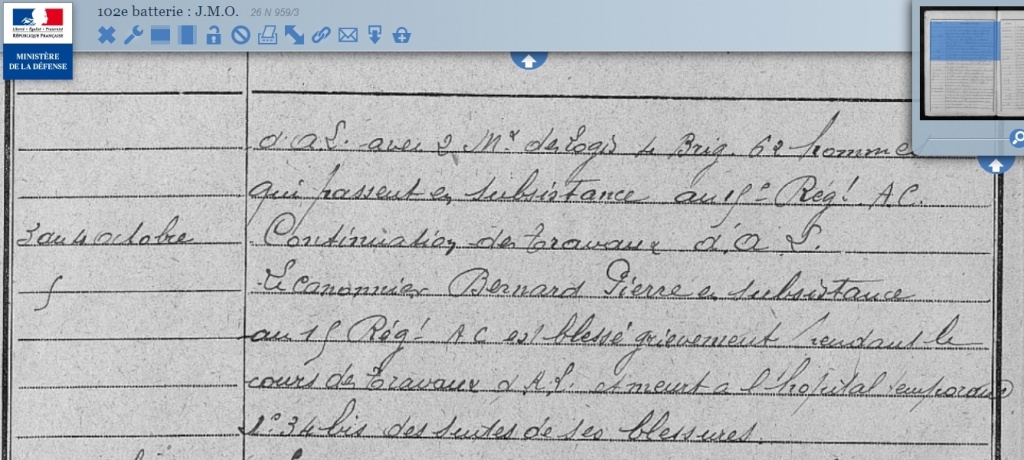 102e batterie : J.M.O. 26 N 959/3
Liberté • Égalité • Fraternité
RÉPUBLIQUE FRANÇAISE
MINISTÈRE
DE LA DÉFENSE
d'A L. avec 2 Mx des Logis 4 Brig. 62 hommes
qui passent en subsistance au 15e Régt A.C.
3 au 4 octobre Continuation des travaux d'A L.
5 Le canonnier Bernard Pierre en subsistance
au 15 Régt AC est blessé grièvement pendant le
cours des travaux d'A.L. et meurt a l'hopital temporaire
n° 34 bis des suites de ses blessures.